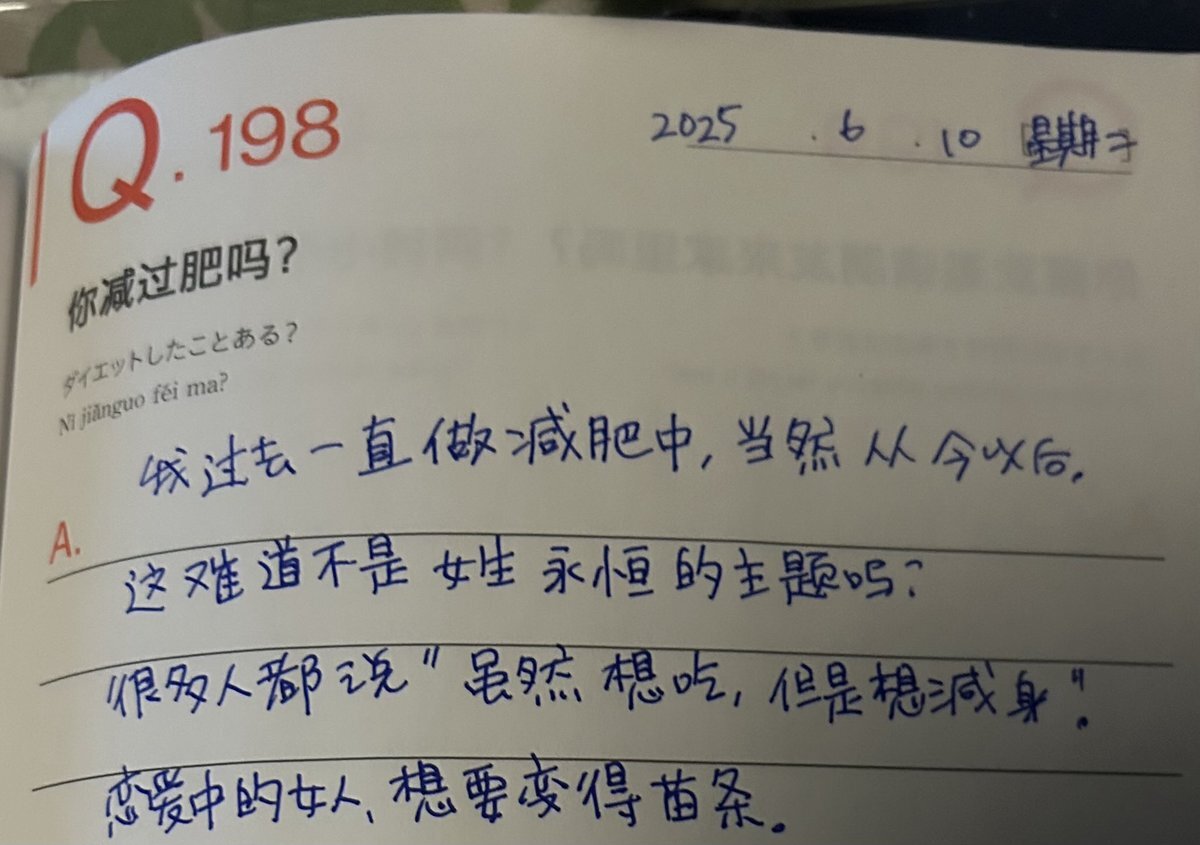 Q. 198
2025 . 6 . 10 星期二
你减过肥吗?
ダイエットしたことある?
Nǐ jiǎnguo féi ma?
我过去一直做减肥中, 当然从今以后.
A.
这难道不是女生永恒的主题吗?
很多人都说"虽然想吃, 但是想减身".
恋爱中的女人, 想要变得苗条。